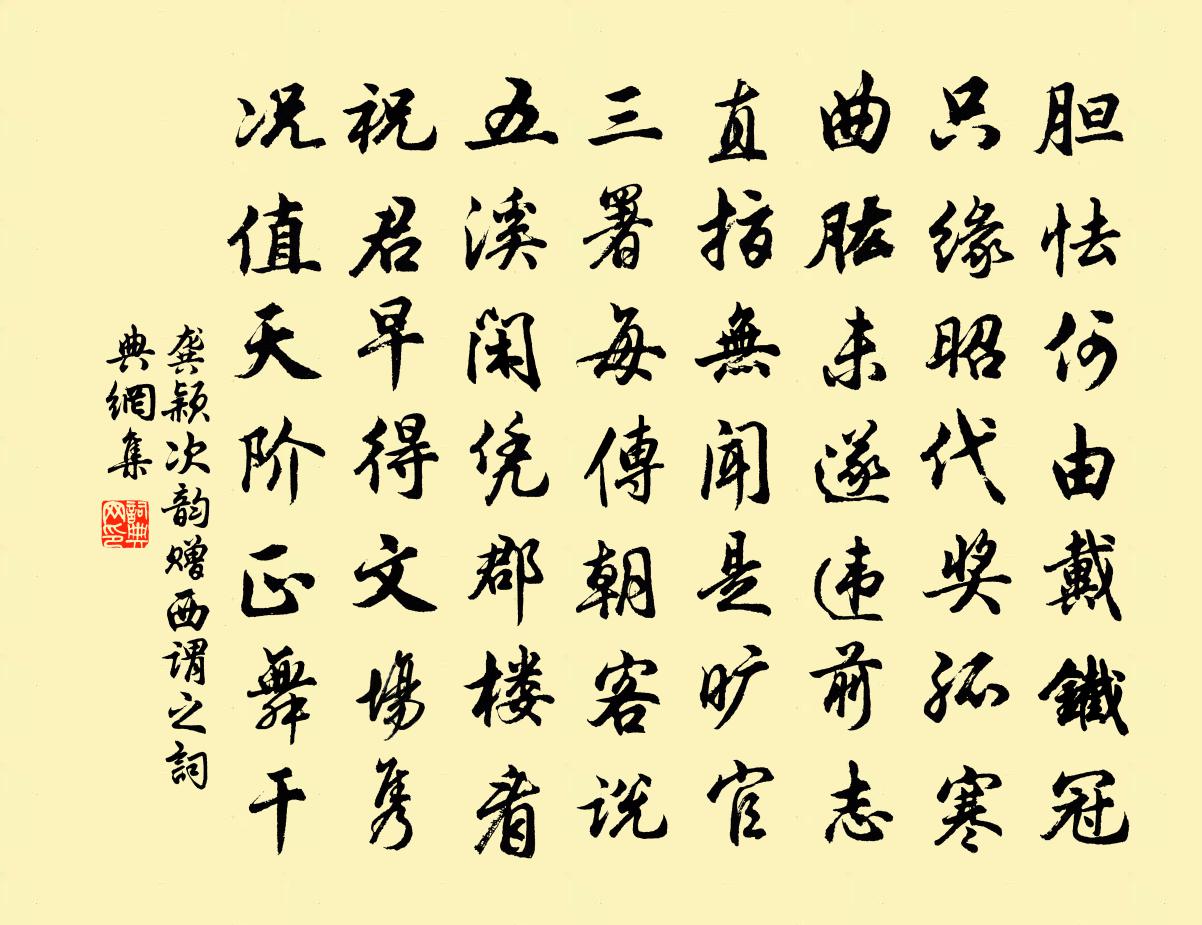 胆怯何由戴鐵冠
只缘昭代奖孤寒
曲肱未遂违前志
直指無聞是旷官
三署每傳朝客说
五溪闲凭郡楼看
祝君早得文場隽
况值天阶正舞干
龚颖次韵赠西谓之詞
典網集
詞典网印